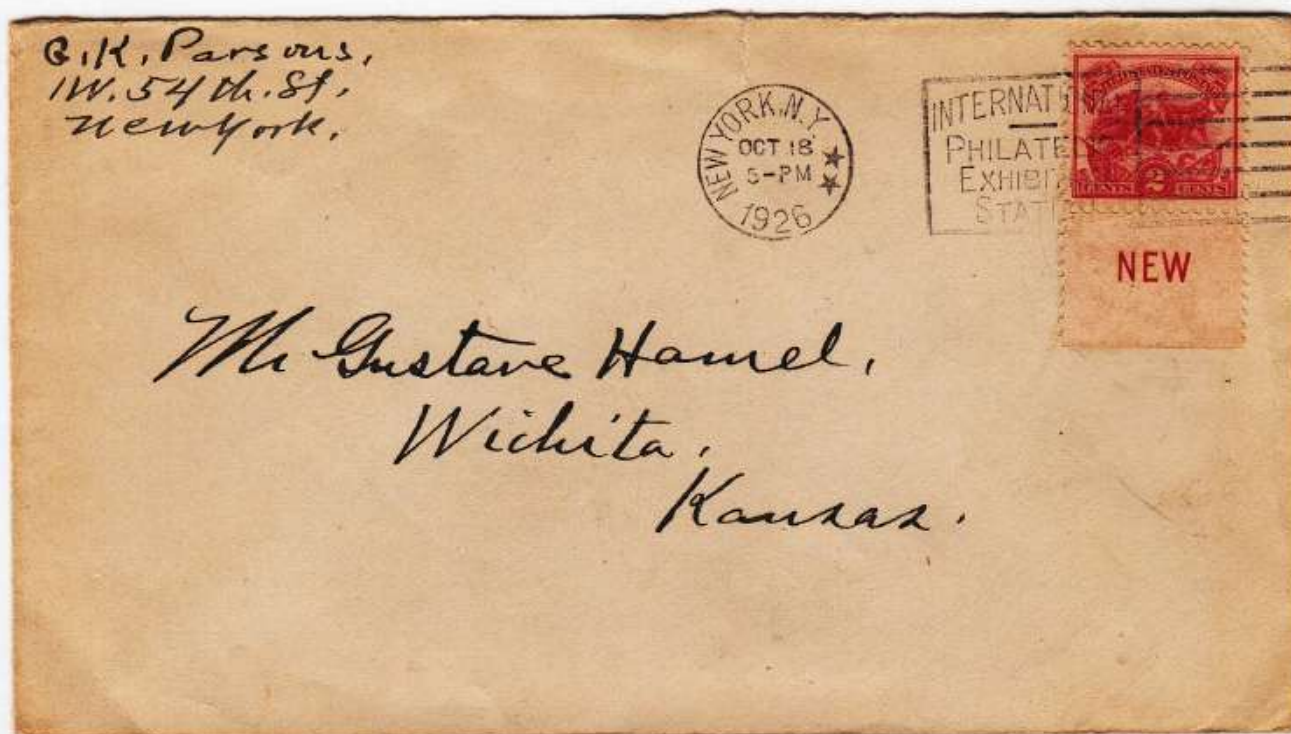 C.K. Parsons,
1 W. 54 th. St,
New York.
NEW YORK, N.Y.
OCT 18
5-PM
1926
INTERNATIO
PHILATE
EXHIBI
STAT
UNITED STATES POSTAGE
CENTS 2 CENTS
NEW
Mr Gustave Hamel,
Wichita,
Kansas.